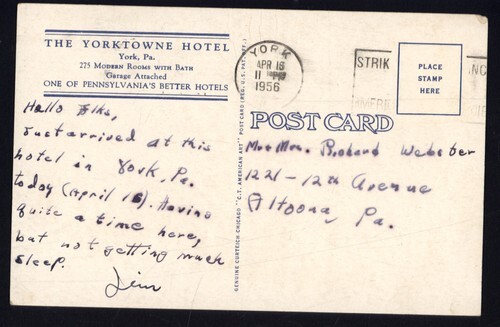 THE YORKTOWNE HOTEL
York, Pa.
275 MODERN ROOMS WITH BATH
Garage Attached
ONE OF PENNSYLVANIA'S BETTER HOTELS
Hello Folks,
Just arrived at this
hotel in York, Pa.
today (April 16). Having
quite a time here,
but not getting much
sleep.
Jim
GENUINE CURTEICH-CHICAGO "C.T. AMERICAN ART" POST CARD (REG. U.S. PAT. OFF.)
YORK
APR 16
11 PM
1956
STRIK
PLACE
STAMP
HERE
POST CARD
Mr & Mrs. Richard Webster
1221-12th Avenue
Altoona, Pa.